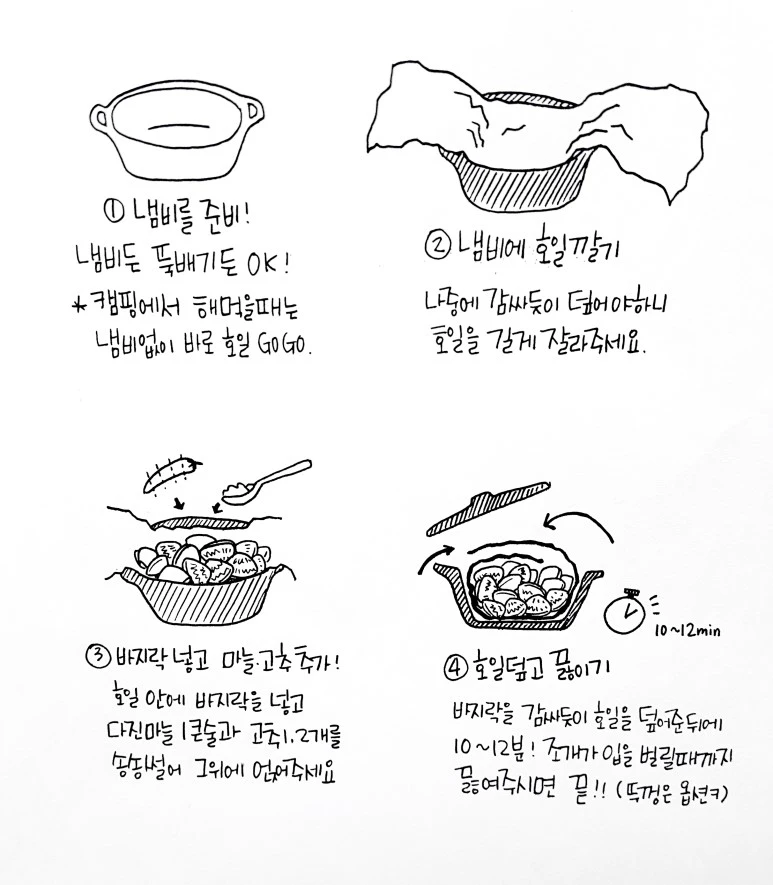 ① 냄비를 준비!
냄비든 뚝배기든 OK!
*캠핑에서 해먹을때는
냄비없이 바로 호일 GOGO.
② 냄비에 호일깔기
나중에 감싸듯이 덮어야하니
호일을 길게 잘라주세요.
③ 바지락 넣고 마늘·고추 추가!
호일 안에 바지락을 넣고
다진마늘 1큰술과 고추1,2개를
송송썰어 그위에 얹어주세요
10~12min
④ 호일덮고 끓이기
바지락을 감싸듯이 호일을 덮어준뒤에
10~12분! 조개가 입을 벌릴때까지
끓여주시면 끝!! (뚜껑은 옵션ㅋ)